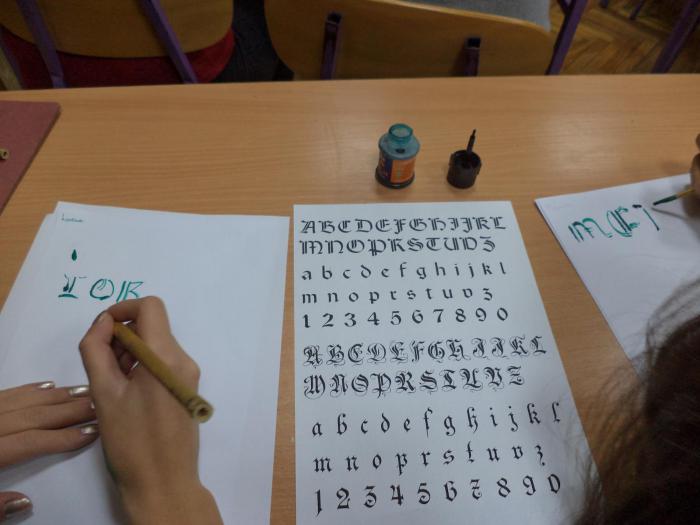 ABCDEFGHIJKL
MNOPRSTUVZ
a b c d e f g h i j k l
m n o p r s t u v z
1 2 3 4 5 6 7 8 9 0
ABCDEFGHIJKL
MNOPRSTUVZ
a b c d e f g h i j k l
m n o p r s t u v z
1 2 3 4 5 6 7 8 9 0